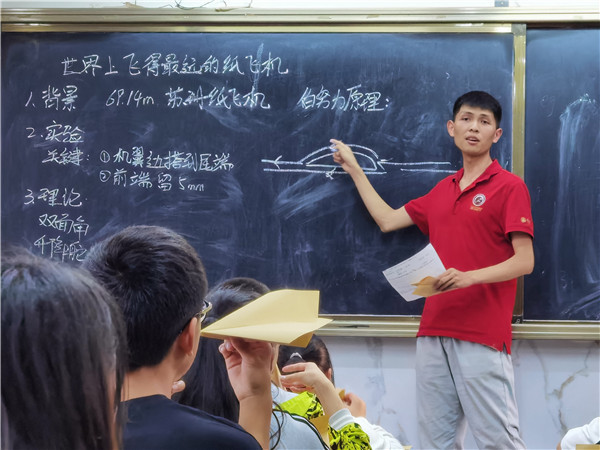 世界上飞得最远的纸飞机
1. 背景 69.14m 苏珊纸飞机 伯努力原理:
2. 实验
关键: ①机翼边搭到尾端
②前端留5mm
3. 理论
双面角
升降舵